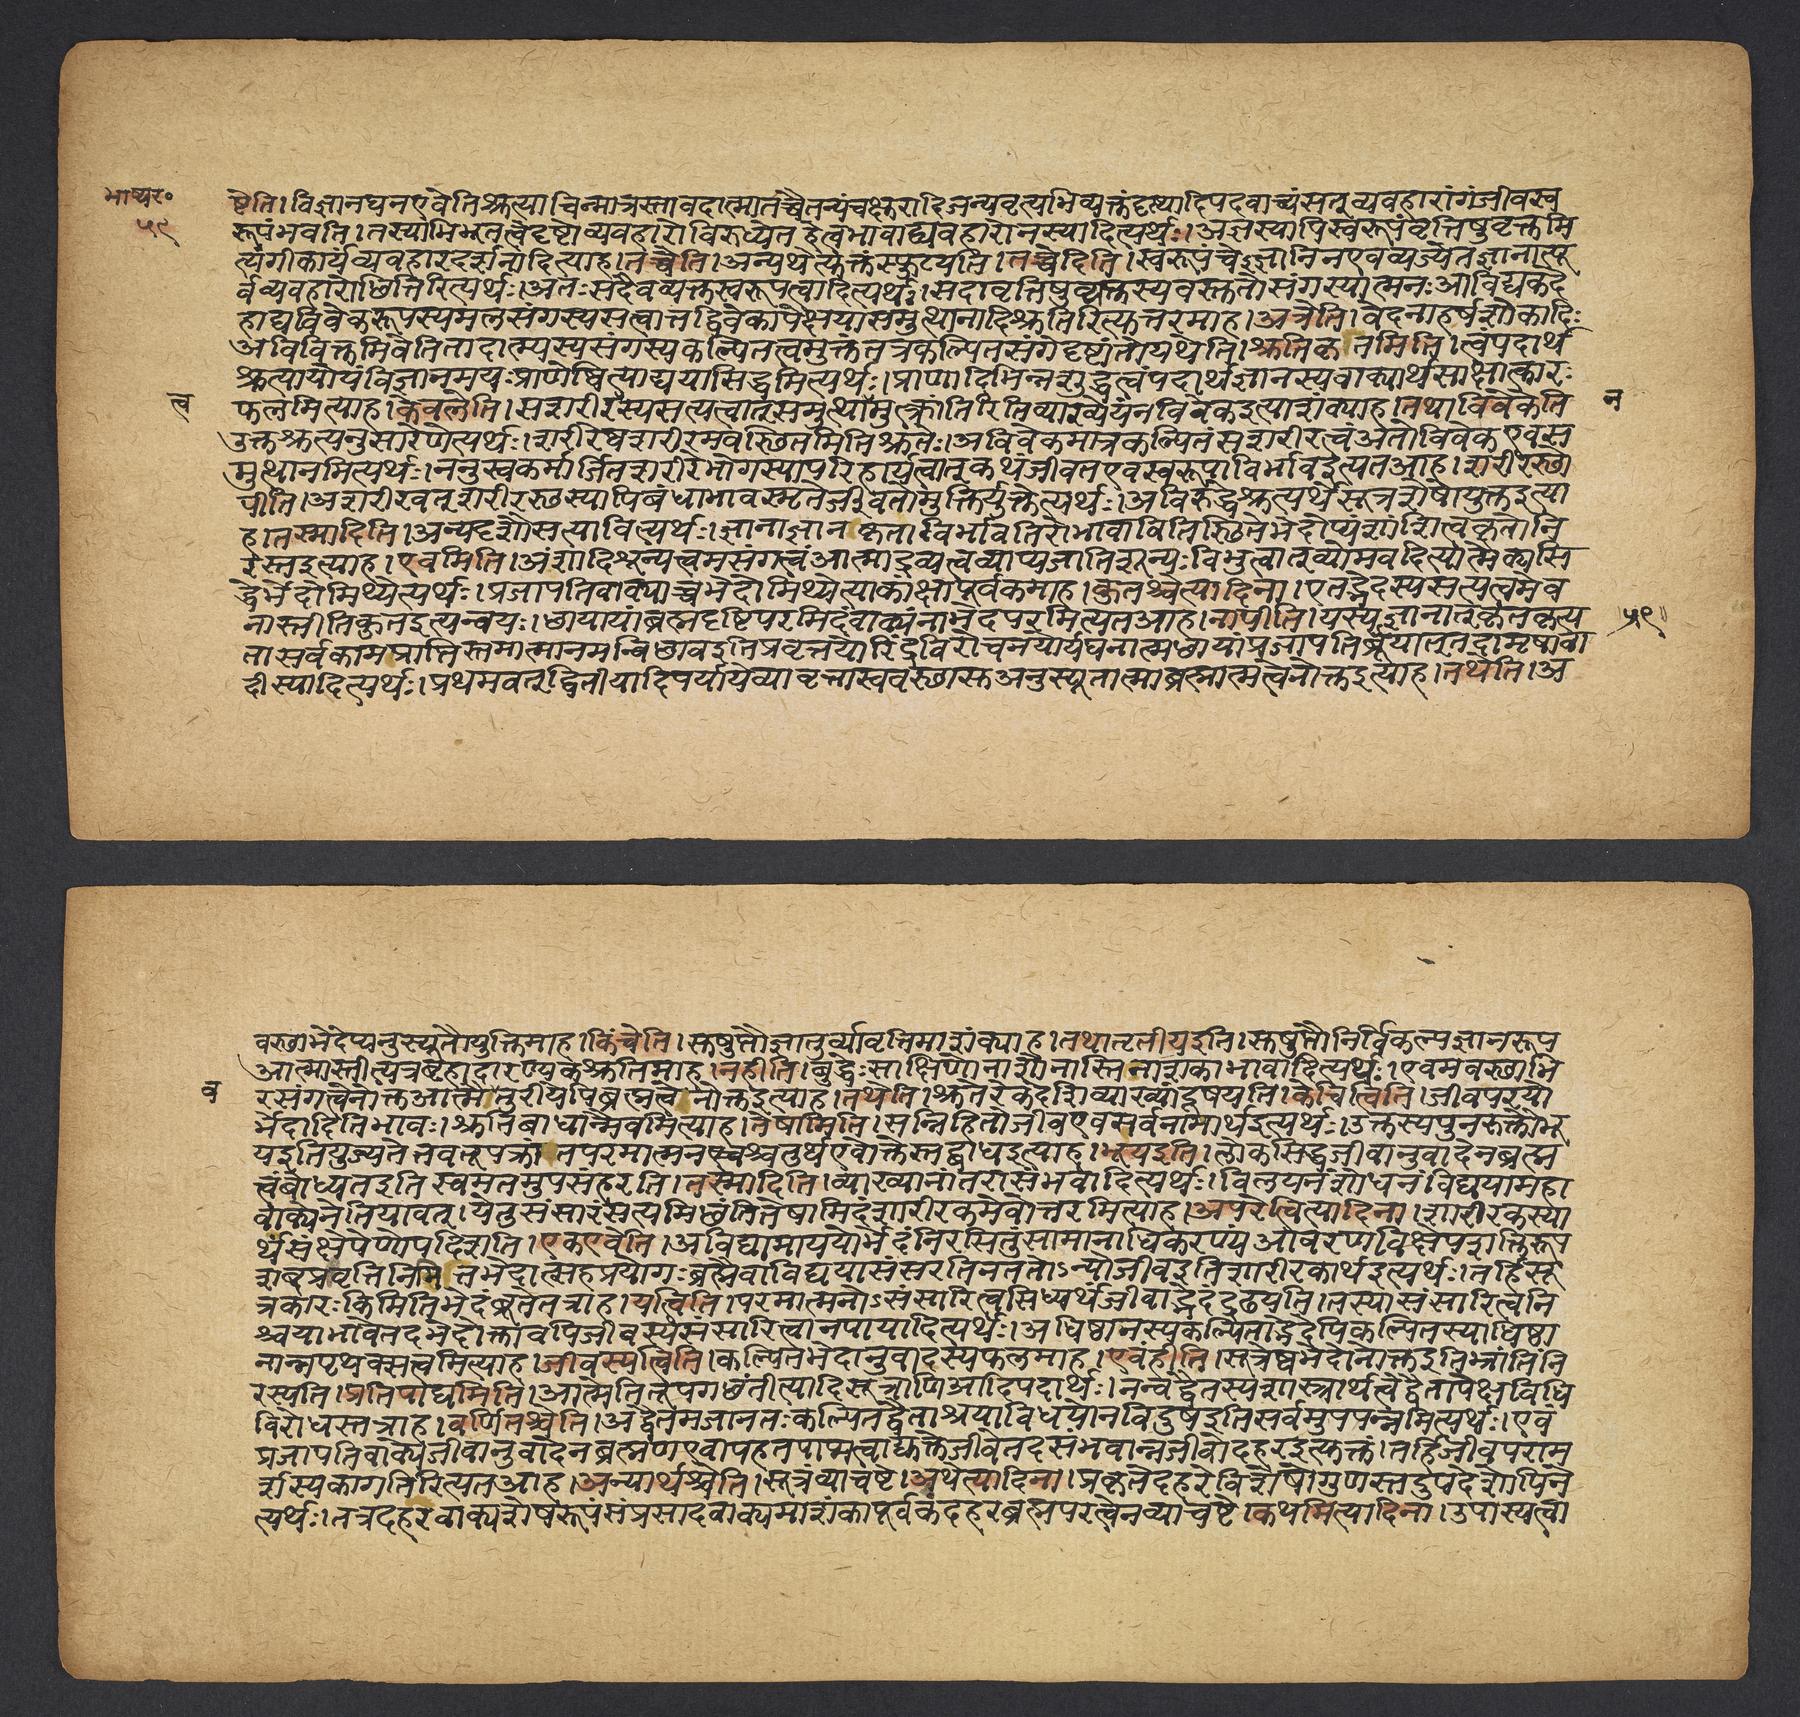 भाष्यर०
५९
ष्टेति।विज्ञानघनएवेतिश्रुत्याचिन्मात्रस्तावदात्मातच्चैतन्यंचक्षुरादिजन्यवृत्यभिव्यक्तंदृष्ट्यादिपदवाच्यंसतुव्यवहारांगंजीवस्व
रूपंभवति।तस्याभिभूतत्वेदृष्टोव्यवहारोविरुध्येतहेत्वभावाद्यवहारोनस्यादित्यर्थः।अज्ञस्यापिस्वरूपंवृत्तिषुव्यक्तमि
त्यंगीकार्यव्यवहारदर्शनादित्याह।तच्चेति।अन्यथेत्युक्तंस्फुटयति।तच्चेदिति।स्वरूपंचेज्ज्ञानिनएवव्यज्येतज्ञानात्पू
र्वव्यवहारोछित्तिरित्यर्थः।अतःसदैवव्यक्तस्वरूपत्वादित्यर्थः।सदावृत्तिषुव्यक्तस्यवस्तुतोसंगस्यात्मनःआविद्यकदे
हाद्यविवेकरूपस्यमलसंगस्यसत्वात्तद्विवेकापेक्षयासमुत्थानादिश्रुतिरित्युत्तरमाह।अत्रेति।वेदनाहर्षशोकादिः
अविविक्तमिवेतितादात्म्यस्यसंगस्यकल्पितत्वमुक्तंतत्रकल्पितसंगेदृष्टांतोयथेति।श्रुतिकृतमिति।त्वंपदार्थ
श्रुत्यायोयंविज्ञानमयःप्राणेष्वित्याद्ययासिद्धमित्यर्थः।प्राणादिभिन्नशुद्धत्वंपदार्थज्ञानस्यवाक्यार्थसाक्षात्कारः
त्व
फलमित्याह।केवलेति।सशरीरस्यसत्यत्वात्समुत्थामुत्क्रांतिरितिव्याख्येयंनविवेकइत्याशंक्याह।तथाविवेकेति
न
उक्तश्रुत्यनुसारेणेत्यर्थः।शरीरेष्वशरीरमवस्थितमितिश्रुतेः।अविवेकमात्रकल्पितंसशरीरत्वंअतोविवेकएवस
मुत्थानमित्यर्थः।ननुस्वकर्मार्जितशरीरेभोगस्यापरिहार्यत्वात्कथंजीवतएवस्वरूपाविर्भावइत्यतआह।शरीरस्थो
पीति।अशरीरवत्शरीरस्थस्यापिबंधाभावस्मृतेर्जीवतोमुक्तिर्युक्तेत्यर्थः।अविरुद्धेश्रुत्यर्थेसूत्रशेषोयुक्तइत्या
ह।तस्मादिति।अन्यदृशौसत्यावित्यर्थः।ज्ञानाज्ञानकृतावविर्भावतिरोभावावितिस्थितेभेदोप्यंशांशित्वकृतोनि
रस्तइत्याह।एवमिति।अंशादिशून्यत्वमसंगत्वंआत्माद्रव्यत्वव्याप्यजातिशून्यःविभुत्वात्व्योमवदित्यात्मैक्यसि
द्धेर्भेदोमिथ्येत्यर्थः।प्रजापतिवाक्याच्चभेदोमिथ्येत्याकांक्षापूर्वकमाह।कुतश्चेत्यादिना।एतद्भेदस्यसत्यत्वमेव
नास्तीतिकुतइत्यन्वयः।छायायांब्रह्मदृष्टिपरमिदंवाक्यंनाभेदपरमित्यतआह।नापीति।यस्यज्ञानात्कृतकृत्य
५९
तासर्वकामप्राप्तिस्तमात्मानमन्विछावइतिप्रवृत्तयोरिंद्रविरोचनयोर्यद्यनात्मछायांप्रजापतिर्ब्रूयात्तदामृषावा
दीस्यादित्यर्थः।प्रथमवत्द्वितीयादिपर्यायेव्यावृत्तास्ववस्थास्तअनुस्यूतात्माब्रह्मात्मत्वेनोक्तइत्याह।तथेति।अ
वस्थाभेदेप्यनुस्यूतौयुक्तिमाह।किंचेति।सुषुप्तौज्ञातुर्व्यावृत्तिमाशंक्याह।तथातृतीयइति।सुषुप्तौनिर्विकल्पज्ञानरूप
आत्मास्तीत्यत्रबृहादारण्यकश्रुतिमाह।नहीति।बुद्धेःसाक्षिणोनाशोनास्तिनाशकाभावादित्यर्थः।एवमवस्थाभि
व
रसंगत्वेनोक्तआत्मैवतुरीयेपिब्रह्मत्वेनोक्तइत्याह।तथेति।श्रुतेरेकदेशिव्याख्यांदूषयति।केचित्विति।जीवपरयो
र्भेदादितिभावः।श्रुतिबाधान्मैवमित्याह।तेषामिति।सन्निहितोजीवएवसर्वनामार्थइत्यर्थः।उक्तस्यपुनरुक्तोभू
यइतियुज्यतेतवतूपक्रांतपरमात्मनएवचतुर्थएवोक्तेस्तद्बाधइत्याह।भूयइति।लोकसिद्धजीवानुवादेनब्रह्म
त्वंबोध्यतइतिस्वमतमुपसंहरति।तस्मादिति।व्याख्यानांतरासंभवादित्यर्थः।विलयनंशोधनंविद्ययामहा
वाक्येनेतियावत्।येतुसंसारंसत्यमिछंतितेषामिदंशारीरकमेवोत्तरमित्याह।अपरेत्वित्यादिना।शारीरकस्या
र्थंसंक्षेपेणोपदिशति।एकएवेति।अविद्यामाययोर्भेदंनिरसितुंसामानाधिकरण्यंआवरणविक्षेपशक्तिरूप
शब्दप्रवृत्तिनिमित्तभेदात्सहप्रयोगःब्रह्मैवाविद्ययासंसरतिनततोऽन्योजीवइतिशारीरकार्थइत्यर्थः।तर्हिसू
त्रकारःकिमितिभेदंब्रूतेतत्राह।यत्विति।परमात्मनोऽसंसारित्वसिध्यर्थंजीवाद्भेदंदृढयति।तस्यासंसारित्वनि
श्चयाभावेतदभेदोक्तावपिजीवस्यसंसारित्वानपायादित्यर्थः।अधिष्ठानस्यकल्पिताद्भेदेपिकल्पितस्याधिष्ठा
नान्नपृथक्सत्वमित्याह।जीवस्यत्विति।कल्पितभेदानुवादस्यफलमाह।एवंहीति।सूत्रेष्वभेदोनोक्तइतिभ्रांतिंनि
रस्यति।प्रतिपाद्यमिति।आत्मेतितूपगछंतीत्यादिसूत्राणिआदिपदार्थः।नन्वद्वैतस्यशास्त्रार्थत्वेद्वैतापेक्षविधि
विरोधस्तत्राह।वर्णितश्चेति।अद्वैतमजानतःकल्पितद्वैताश्रयाविधयोनविदुषइतिसर्वमुपपन्नमित्यर्थः।एवं
प्रजापतिवाक्येजीवानुवादेनब्रह्मणएवापहतपाप्मत्वाद्युक्तेर्जीवेतदसंभवान्नजीवोदहरइत्युक्तं।तर्हिजीवपराम
र्शस्यकागतिरित्यतआह।अन्यार्थश्चेति।सूत्रंव्याचष्टे।अथेत्यादिना।प्रकृतेदहरेविशेषोगुणस्तदुपदेशोपिने
त्यर्थः।तत्रदहरवाक्यशेषरूपंसंप्रसादवाक्यमाशंकापूर्वकंदहरब्रह्मपरत्वेनव्याचष्टे।कथमित्यादिना।उपास्यत्वा